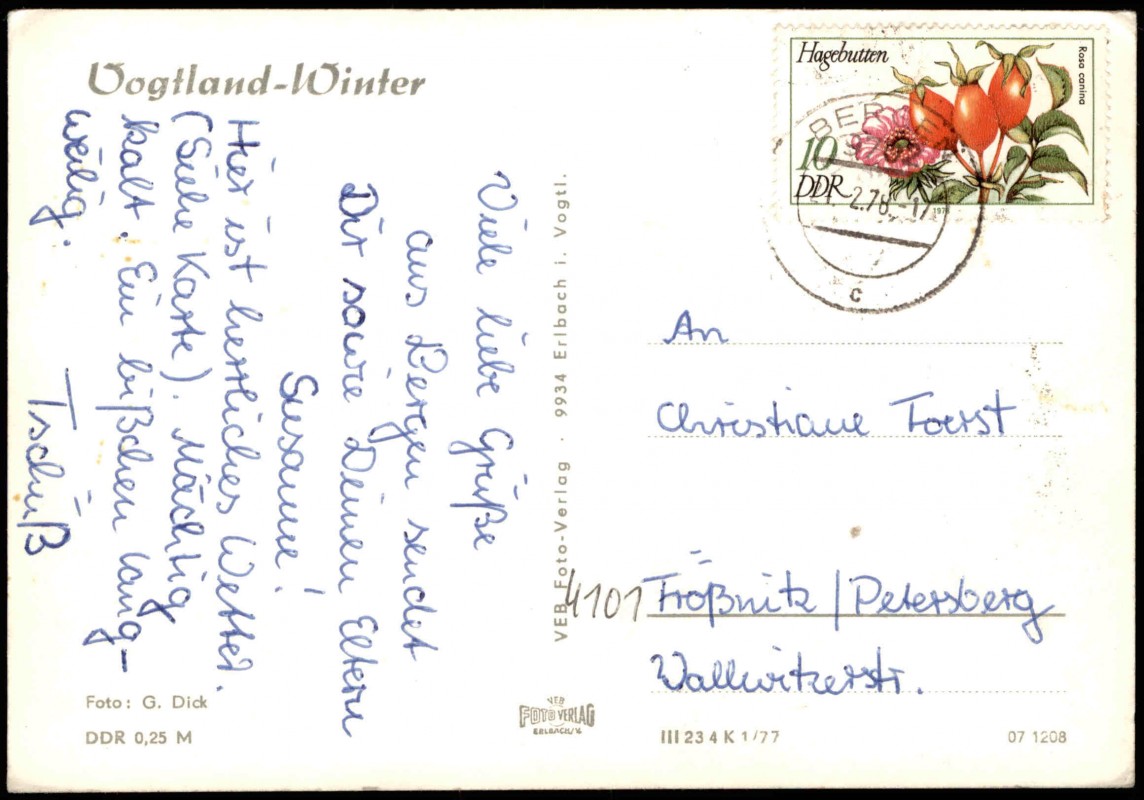 Vogtland-Winter
Viele liebe Grüße
aus Bergen sendet
Dir sowie Deinen Eltern
Susanne!
Hier ist herrliches Wetter.
(Siehe Karte). Mächtig
kalt. Ein bißchen lang-
weilig.
Tschüß
Foto: G. Dick
DDR 0,25 M
VEB Foto-Verlag · 9934 Erlbach i. Vogtl.
VEB
FOTO VERLAG
ERLBACH/V.
Hagebutten
Rosa canina
10
DDR
2.78.-17
c
An
Christiane Foerst
4101 Frößnitz / Petersberg
Wallwitzerstr.
III 23 4 K 1/77
07 1208